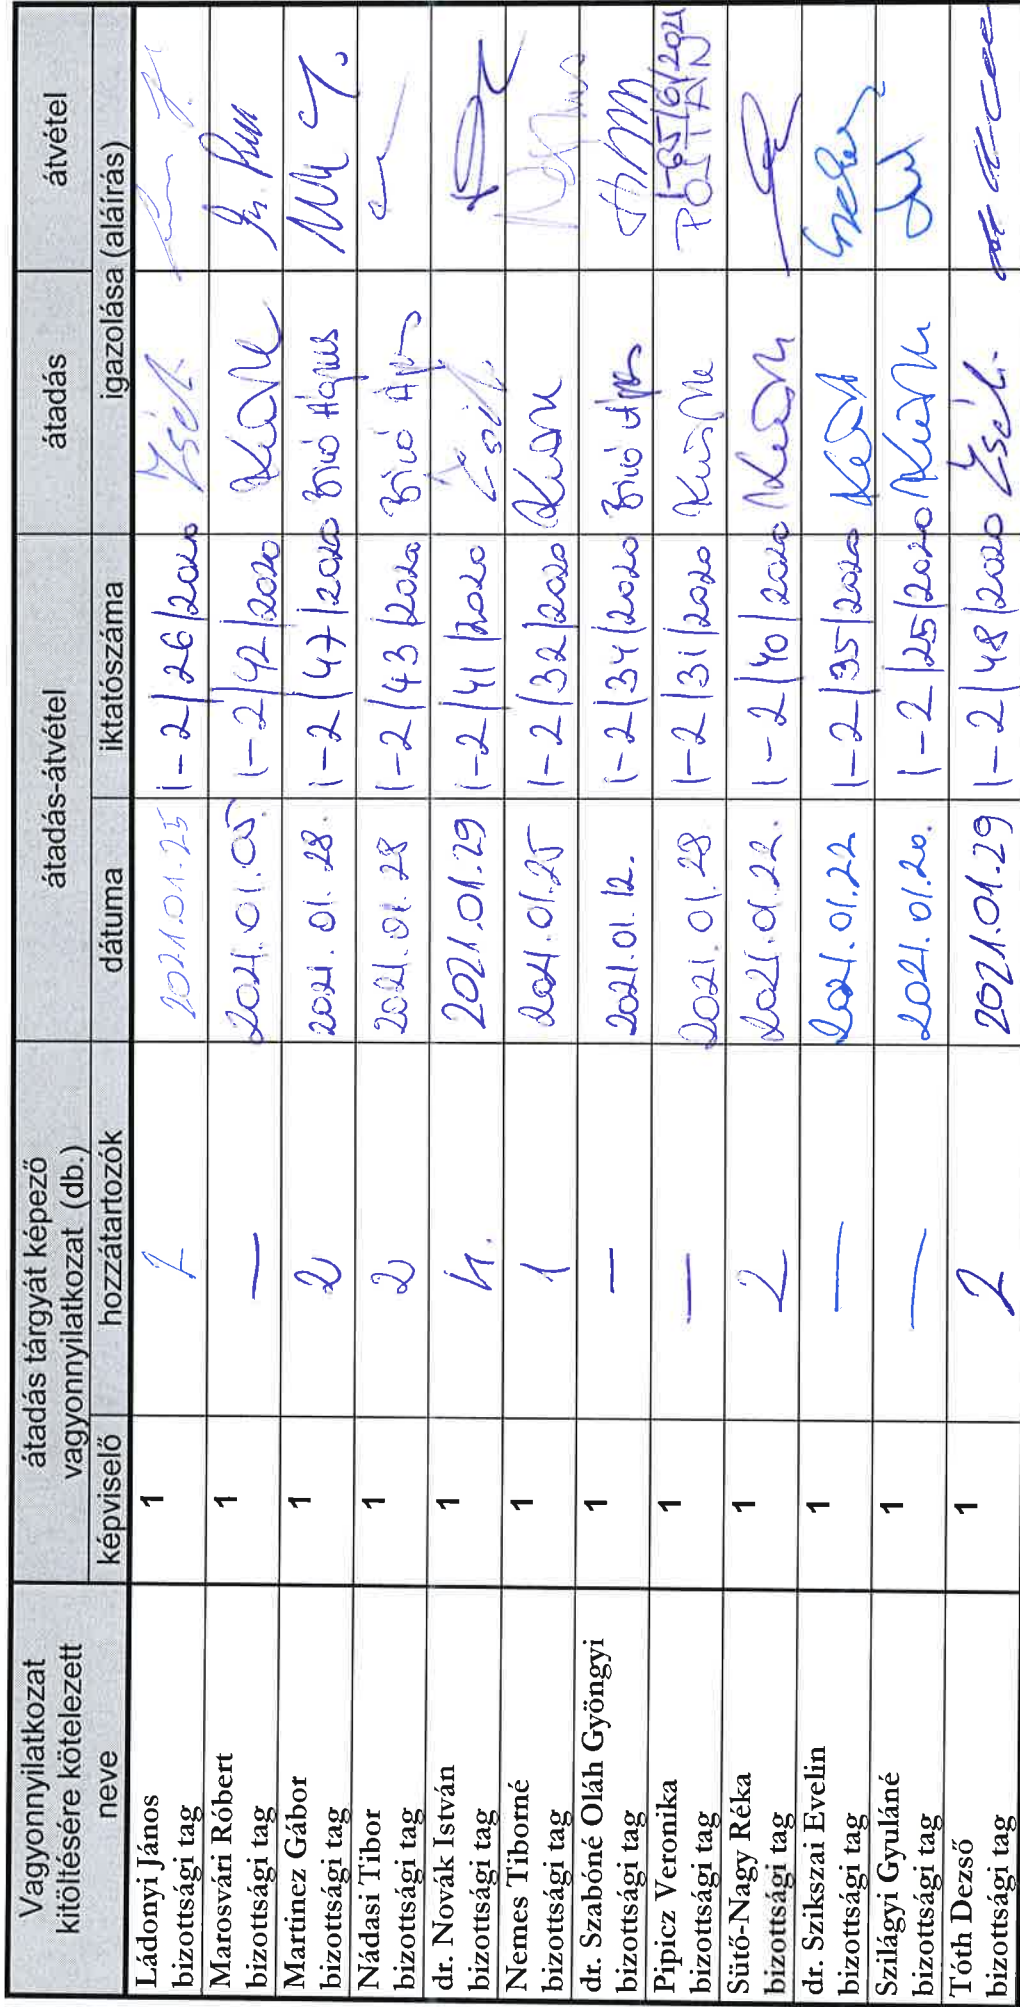 Vagyonnyilatkozat
kitöltésére kötelezett
neve
átadás tárgyát képező
vagyonnyilatkozat (db.)
képviselő
hozzátartozók
átadás-átvétel
dátuma
iktatószáma
átadás
átvétel
igazolása (aláírás)
Ládonyi János
bizottsági tag
1
2
2021.01.25
1-2/26/2020
Marosvári Róbert
bizottsági tag
1
—
2021.01.05.
1-2/42/2020
Martinez Gábor
bizottsági tag
1
2
2021.01.28.
1-2/47/2020
Bíró Ágnes
Nádasi Tibor
bizottsági tag
1
2
2021.01.28
1-2/43/2020
Bíró Ágnes
dr. Novák István
bizottsági tag
1
4.
2021.01.29
1-2/41/2020
Nemes Tiborné
bizottsági tag
1
1
2021.01.25
1-2/32/2020
dr. Szabóné Oláh Gyöngyi
bizottsági tag
1
—
2021.01.12.
1-2/34/2020
Bíró Ágnes
Pipicz Veronika
bizottsági tag
1
—
2021.01.28
1-2/31/2020
1-65/6/2021
POSTÁN
Sütő-Nagy Réka
bizottsági tag
1
2
2021.01.22.
1-2/40/2020
dr. Szikszai Evelin
bizottsági tag
1
—
2021.01.22
1-2/35/2020
Szilágyi Gyuláné
bizottsági tag
1
—
2021.01.20.
1-2/25/2020
Tóth Dezső
bizottsági tag
1
2
2021.01.29
1-2/48/2020